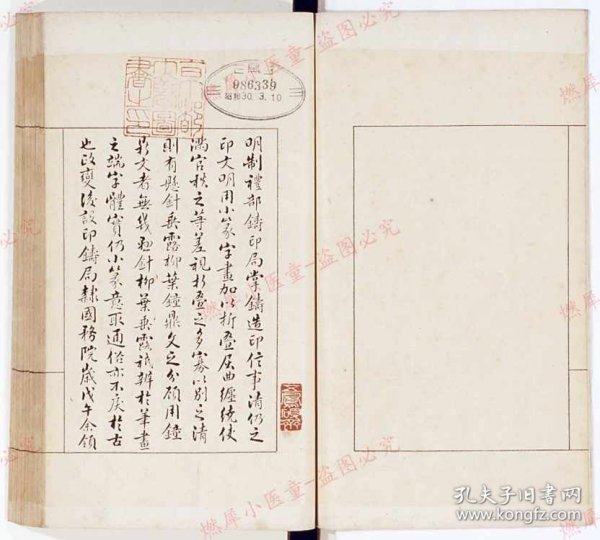 明制禮部鑄印局掌鑄造印信事清仍之
印文明用小篆字畫加以折疊屈曲纏繞使
滿官秩之等差視折疊之多寡以別之清
則有懸針垂露柳葉鐘鼎文之分顧用鐘
鼎文者無幾懸針柳葉垂露祇辨於筆畫
之端字體實仍小篆意取通俗亦不戾於古
也改變後設印鑄局隸國務院歲戊午余領
986339
昭和30. 3. 10
燃犀小医童-盗图必究
燃犀小医童-盗图必究
燃犀小医童-盗图必究
孔夫子旧书网
www.kongfz.com